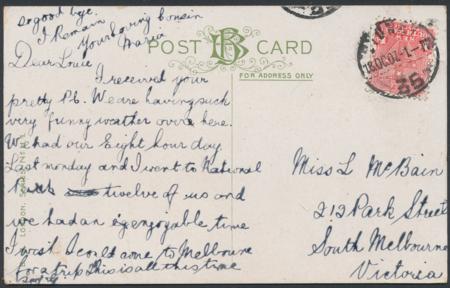 so good bye.
I Remain
Your loving Cousin
POST CARD
FOR ADDRESS ONLY
Dear Louie
I received your
pretty P.C. We are having such
very funny weather over here.
We had our Eight hour day.
Last monday and I went to National
Park twelve of us and
we had an enjoyable time
I wish I could come to Melbourne
for a trip This is all this time
Miss L McBain
212 Park Street
South Melbourne
Victoria
35